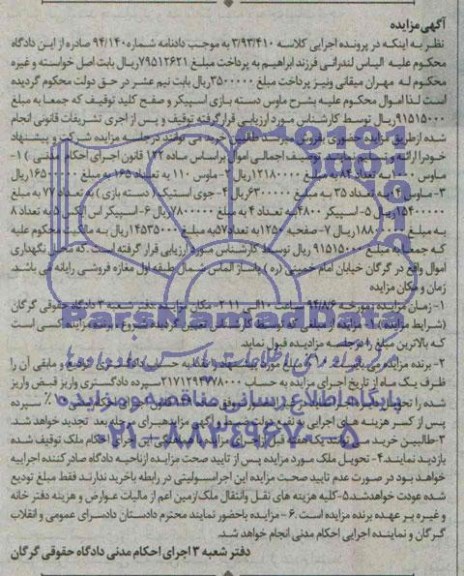 آگهی مزایده
نظر به اینکه در پرونده اجرایی کلاسه ۳/۹۳/۴۱۰ به موجب دادنامه شماره ۹۴/۱۴۰ صادره از این دادگاه
محکوم علیه الیاس لندرانی فرزند ابراهیم به پرداخت مبلغ ۷۹۵۱۲۶۲۱ ریال بابت اصل خواسته و غیره
محکوم له مهران میقانی ونیز پرداخت مبلغ ۳۵۰۰۰۰۰ ریال بابت نیم عشر در حق دولت محکوم گردیده
است لذا اموال محکوم علیه بشرح ماوس دسته بازی اسپیکر و صفح کلید توقیف که جمعا به مبلغ
۹۱۵۱۵۰۰۰ ریال توسط کارشناس مورد ارزیابی قرار گرفته توقیف و پس از اجری تشریفات قانونی انجام
شده از طریق مزایده حضوری بفروش میرسد می توانند در جلسه مزایده شرکت و پیشنهاد
خود را ارائه توصیف اجمالی اموال براساس ماده ۱۳۲ قانون اجرای احکام مدنی ) ۱-
ماوس به تعداد ۸۴ به مبلغ ۱۲۱۸۰۰۰۰ ریال ماوس ۱۱۰ به تعداد ۱۶۵ به مبلغ ۱۶۵۰۰۰۰۰ ریال
۳- ماوس به تعداد ۳۵ به مبلغ ۶۳۰۰۰۰۰ ریال ۴- جوی استیک ( دسته بازی ) به تعداد ۷۷ به مبلغ
۱۵۴۰۰۰۰۰ ریال ۵- اسپیکر ۲۸۰۰ به تعداد ۴ به مبلغ ۷۸۰۰۰۰۰ ریال ۶- اسپیکر به تعداد ۸
به مبلغ ریال ۷- صفحه به تعداد ۵۷ به مبلغ ۱۴۵۳۵۰۰۰ ریال به مالکیت محکوم علیه
که جمعا به مبلغ ۹۱۵۱۵۰۰۰ ریال توسط کارشناس مورد ارزیابی قرار گرفته است .که محل نگهداری
اموال واقع در گرگان خیابان امام خمینی (ره ) پاساژ الماس شمال طبقه اول مغازه فروشی رایانه می باشد.
زمان و مکان مزایده
۱- زمان مزایده بمورخه ۹۴/۸/۶ ساعت ۱۰ الی ۱۱ ۲- مکان مزایده دفتر شعبه ۳ دادگاه حقوقی گرگان
(شرایط مزایده) ۱- مزایده از مبلغی که توسط کارشناس تعیین گردیده شروع و برنده مزایده کسی است
که بالاترین مبلغ را در جلسه مزایده قبول نماید
۲- برنده مزایده می بایست مبلغ مورد به حساب دادگستری تودیع و مابقی آن را
ظرف یک ماه از تاریخ اجرای مزایده به حساب ۲۱۷۱۲۹۴۷۷۸۰۰۰ سپرده دادگستری واریز قبض واریز
شده را تحویل ۱۰٪ سپرده
پس از کسر هزینه های اجرایی و آگهی مزایده برای مرحله بعد تجدید خواهد شد.
۳- طالبین خرید هفته قبل از اجرای مزایده احکام ملک توقیف شده
بازدید نمایند. ۴- تحویل ملک مورد مزایده پس از تایید صحت مزایده از ناحیه دادگاه صادر کننده اجراییه
خواهد بود در صورت عدم تایید صحت مزایده این اجرا مسولیتی در رابطه با خرید ندارند فقط مبلغ تودیع
شده عودت خواهد شد. ۵- کلیه هزینه های نقل وانتقال ملک ازمین اعم از مالیات عوارض و هزینه دفتر خانه
و غیره بر عهده برنده مزایده است. ۶- مزایده با حضور نماینده محترم دادستان دادسرای عمومی و انقلاب
گرگان و نماینده اجرایی احکام مدنی انجام خواهد شد.
دفتر شعبه ۳ اجرای احکام مدنی دادگاه حقوقی گرگان
ParsNamadData
پایگاه اطلاع رسانی مناقصه و مزایده
۰۲۱-۸۸۳۴۹۶۷۰-۵